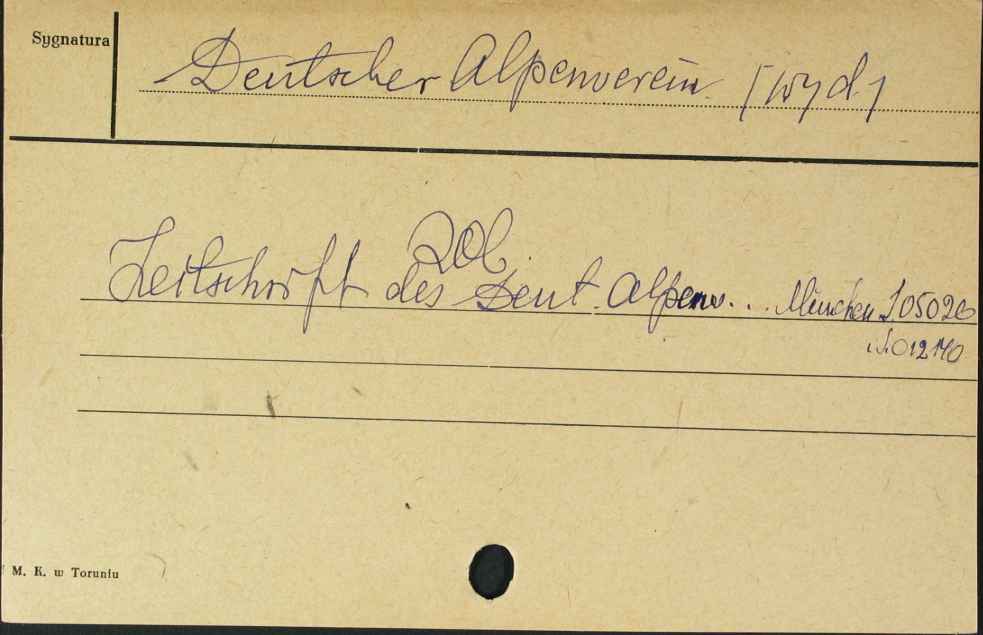 Sygnatura
Deutscher Alpenverein [wyd.]
Zob.
Zeitschrift des Deut. Alpenv. .. München I 05026
012140
M. K. w Toruniu